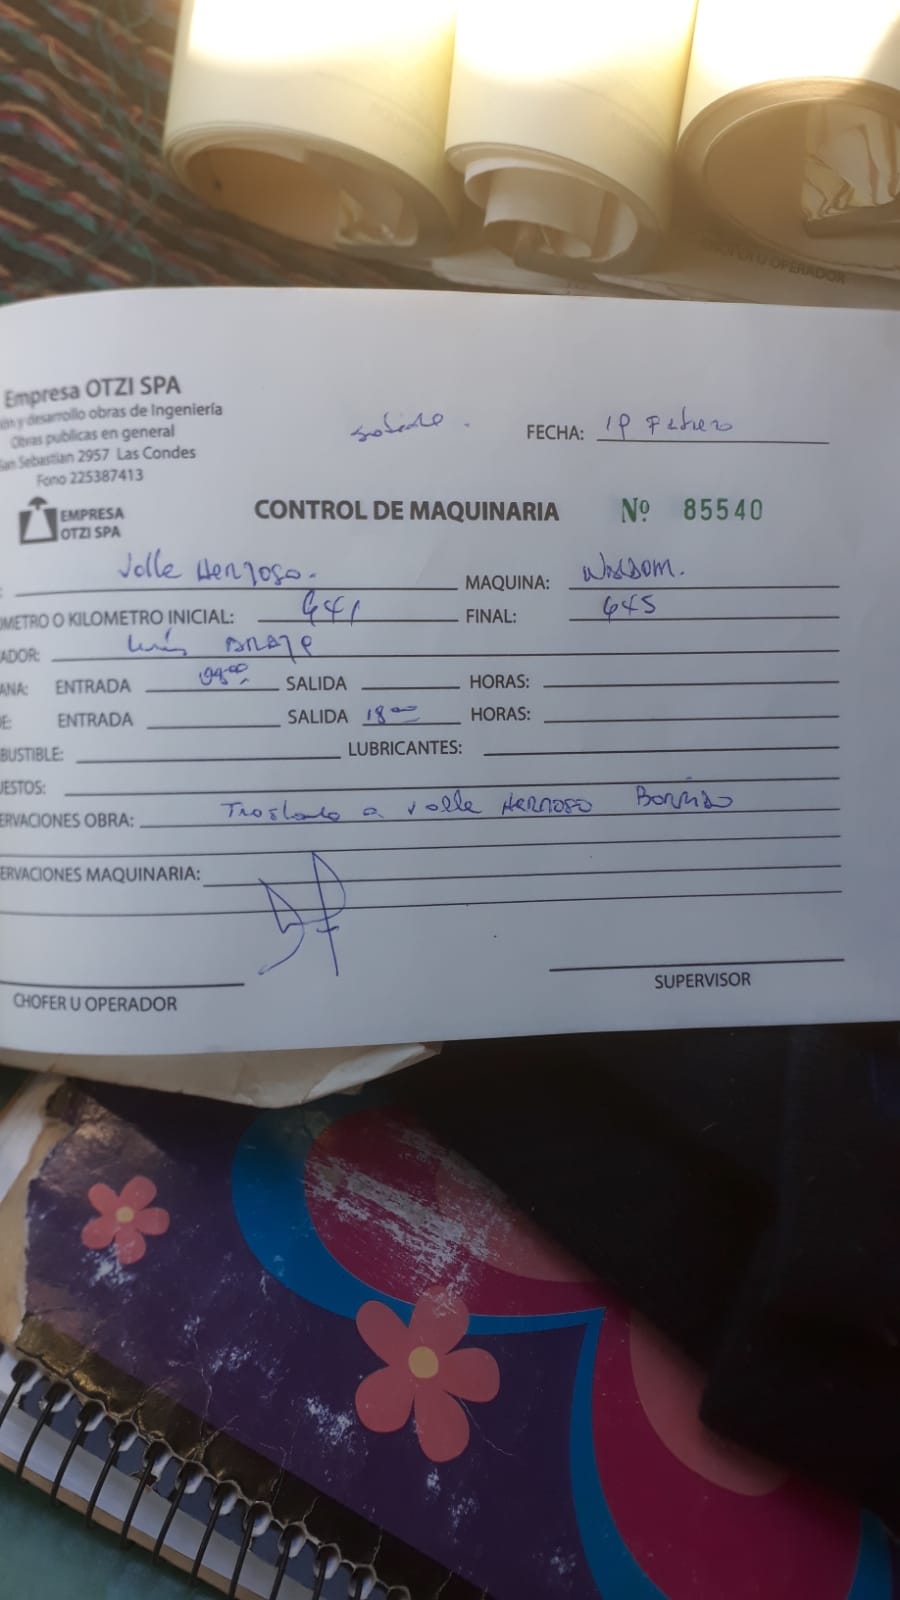 Empresa OTZI SPA
ón y desarrollo obras de Ingeniería
Obras publicas en general
San Sebastian 2957 Las Condes
Fono 225387413
FECHA: 19 Febrero
EMPRESA
OTZI SPA
CONTROL DE MAQUINARIA Nº 85540
Valle Hermoso. MAQUINA:
OMETRO O KILOMETRO INICIAL: 641 FINAL: 645
ADOR: Luis
ANA: ENTRADA SALIDA HORAS:
E: ENTRADA SALIDA 18:00 HORAS:
BUSTIBLE: LUBRICANTES:
UESTOS:
ERVACIONES OBRA: Traslado a valle Hermoso
ERVACIONES MAQUINARIA:
CHOFER U OPERADOR SUPERVISOR
CHOFER U OPERADOR